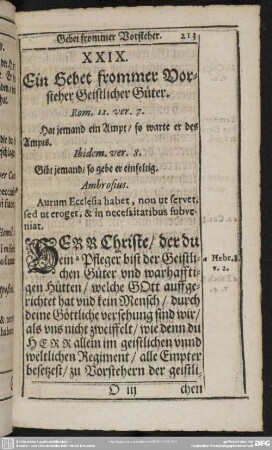 Gebet frommer Vorsteher. 213
XXIX.
Ein Gebet frommer Vor-
steher Geistlicher Güter.
Rom. 12. ver. 7.
Hat jemand ein Ampt/ so warte er des
Ampts.
Ibidem. ver. 8.
Gibt jemand/ so gebe er einfeltig.
Ambrosius.
Aurum Ecclesia habet, non ut servet,
sed ut eroget, & in necessitatibus subve-
niat.
HERR Christe/ der du
ein Pfleger bist der Geistli-
chen Güter vnd warhaffti-
gen Hütten/ welche GOtt auffge-
richtet hat vnd kein Mensch/ durch
deine Göttliche versehung sind wir/
als vns nicht zweiffelt/ wie denn du
HERR allein im geistlichen vnnd
weltlichen Regiment/ alle Empter
besetzest/ zu Vorstehern der geistli-
O iij chen
a Hebr. 8.
v. 2.